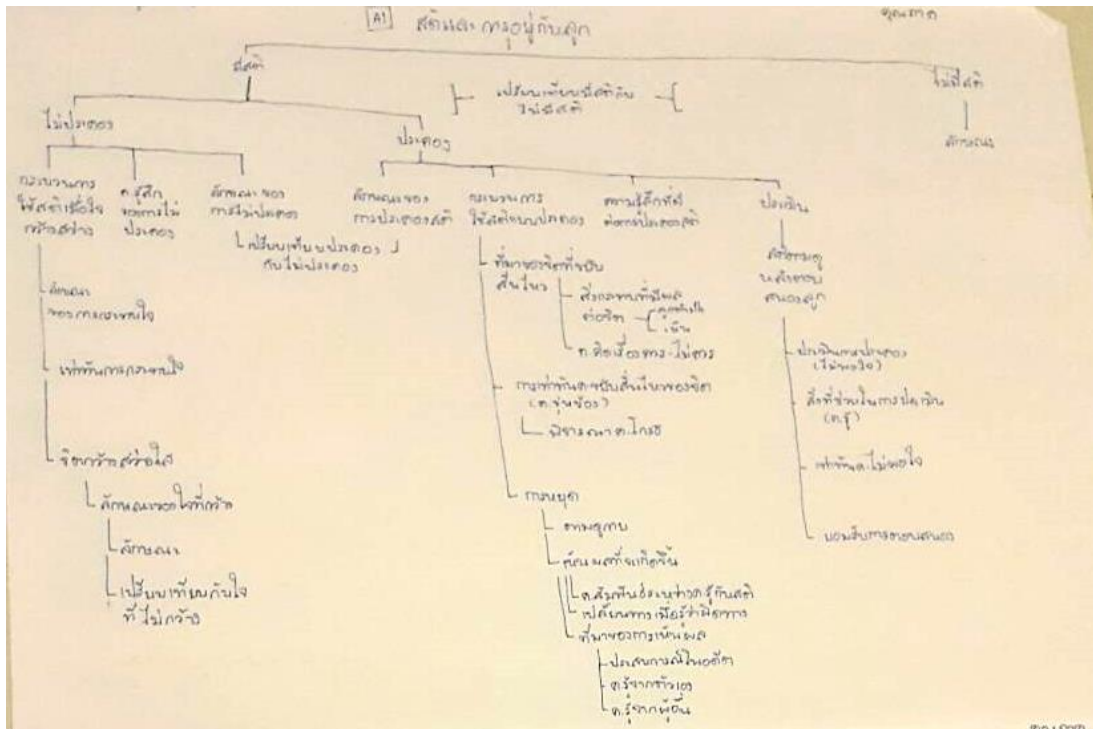 A1 สติและการอยู่กับลูก
มีสติ
ไม่มีสติ
เปรียบเทียบมีสติกับ
ไม่มีสติ
ลักษณะ
ไม่ประคอง
ประคอง
กระบวนการ
ใช้สติเพื่อใจ
กว้างสว่าง
ค.รู้สึก
ของการไม่
ประคอง
ลักษณะของ
การไม่ประคอง
เปรียบเทียบประคอง
กับไม่ประคอง
ลักษณะของ
การประคองสติ
กระบวนการ
ใช้สติแบบประคอง
ความรู้สึกที่มี
ต่อการประคองสติ
ประเมิน
ลักษณะ
ของการกระทบใจ
เท่าทันการกระทบใจ
จิตกว้างสว่างใส
ลักษณะของใจที่กว้าง
ลักษณะ
เปรียบเทียบกับใจ
ที่ไม่กว้าง
ที่มาของจิตที่ขยับ
สั่นไหว
สิ่งกระทบที่มีผล
ต่อจิต
ค.คิดเรื่องควร-ไม่ควร
การเท่าทันค.ขยับสั่นไหวของจิต
(ค.ขุ่นข้อง)
พิจารณาค.โกรธ
การหยุด
ตามดูกาย
เห็นผลที่จะเกิดขึ้น
ค.สัมพันธ์ระหว่างค.รู้กับสติ
เปลี่ยนทางเมื่อรู้ว่าผิดทาง
ที่มาของการเห็นผล
ประสบการณ์ในอดีต
ค.รู้จากตัวเอง
ค.รู้จากผู้อื่น
สติตามดู
หลังตอบ
สนองลูก
ประเมินการประคอง
(ไม่พอใจ)
สิ่งที่ช่วยในการประเมิน
(ค.รู้)
เท่าทันค.ไม่พอใจ
ยอมรับการตอบสนอง